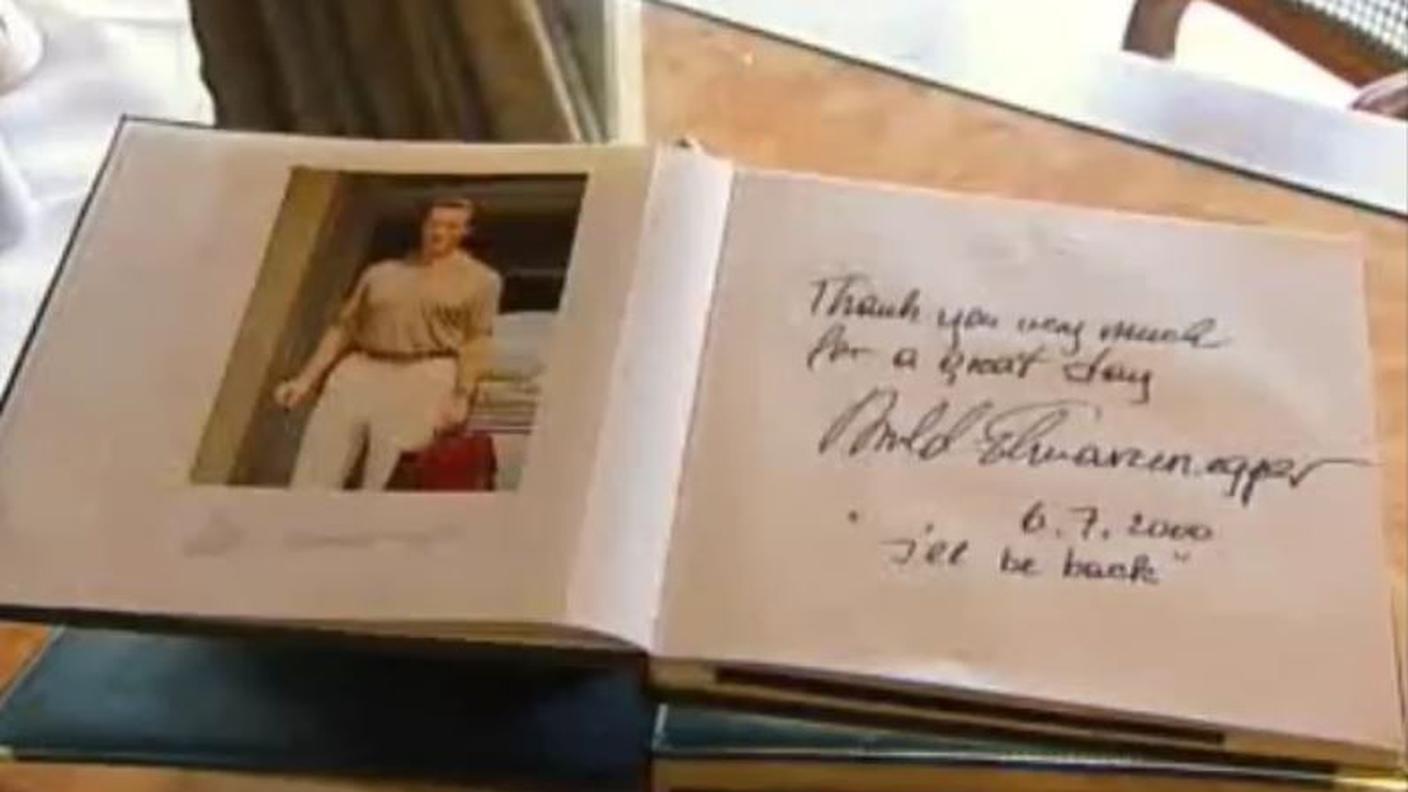 Thank you very much
for a great stay
Arnold Schwarzenegger
6.7.2000
"I'll be back"